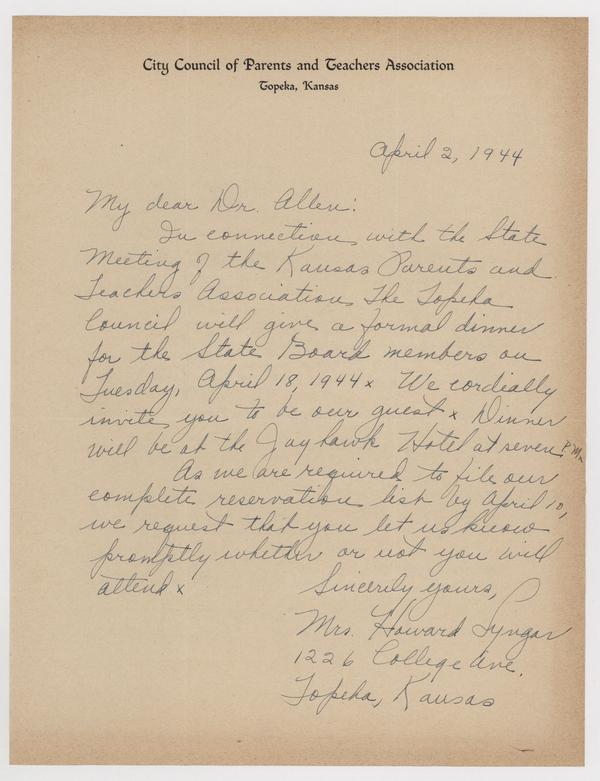 City Council of Parents and Teachers Association
Topeka, Kansas
April 2, 1944
My dear Dr. Allen:
In connection with the State
Meeting of the Kansas Parents and
Teachers Association, The Topeka
Council will give a formal dinner
for the State Board members on
Tuesday, April 18, 1944x We cordially
invite you to be our guest x Dinner
will be at the Jayhawk Hotel at seven P.M.
As we are required to file our
complete reservation list by April 10,
we request that you let us know
promptly whether or not you will
attend x
Sincerely yours,
Mrs. Howard
1226 College Ave.
Topeka, Kansas